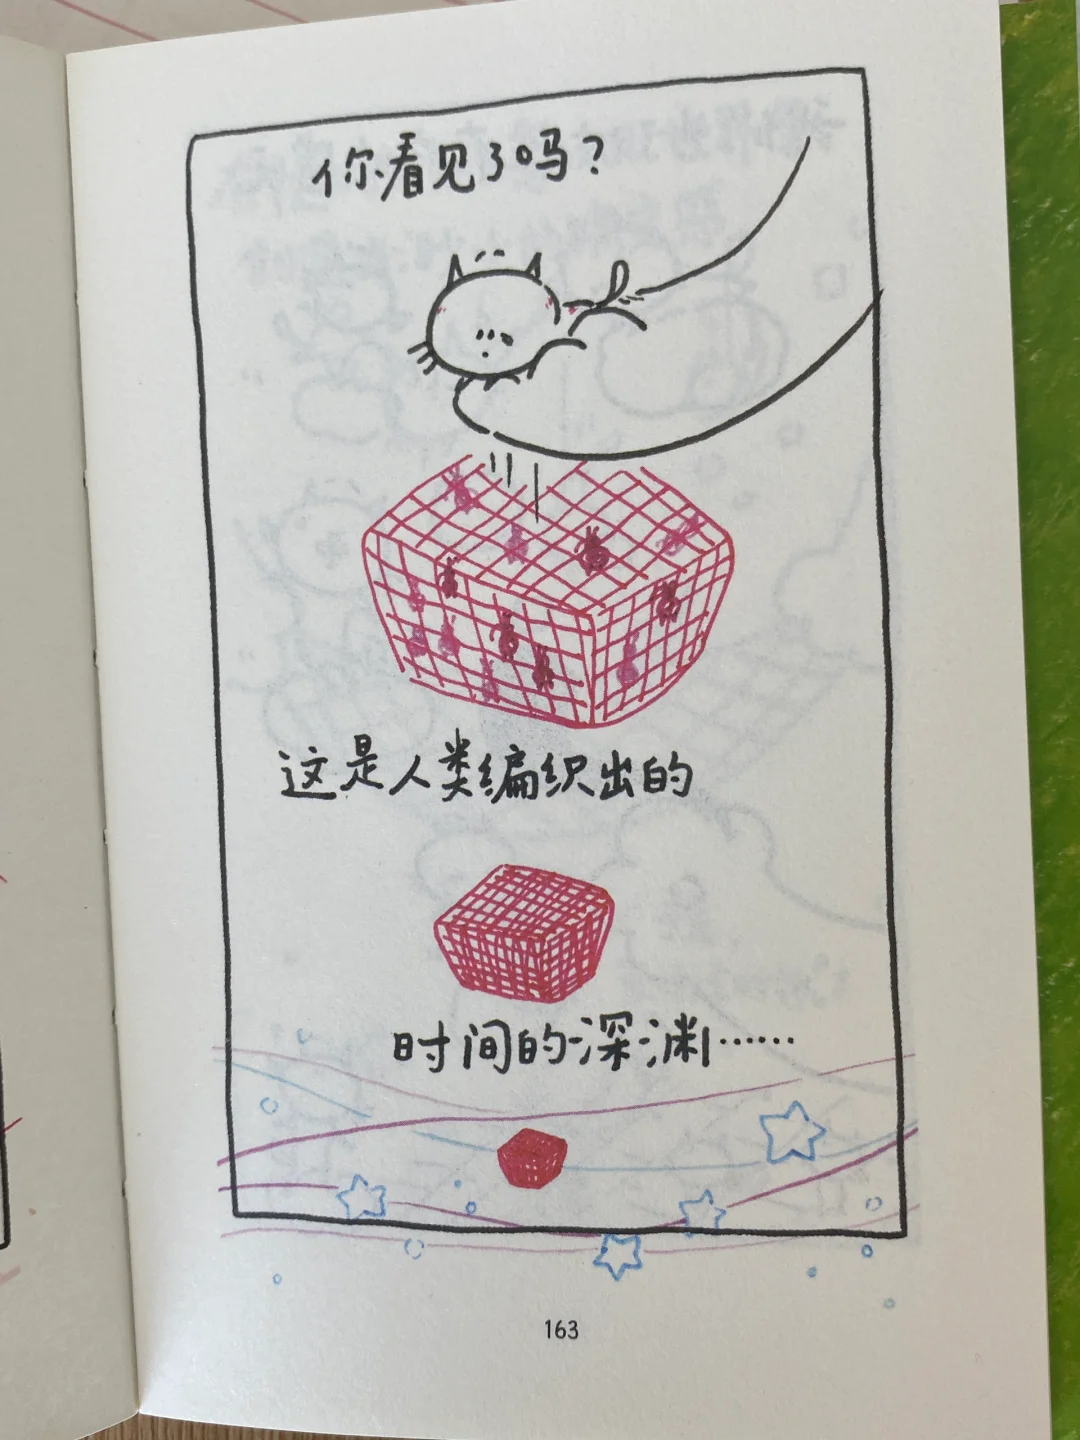 你看见了吗？
这是人类编织出的
时间的深渊……
163